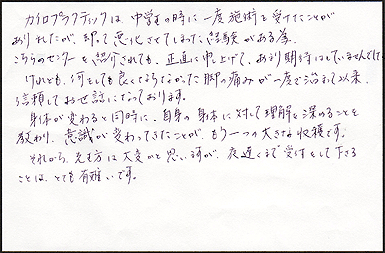 カイロプラクティックは、中学生の時に一度施術を受けたことが
ありましたが、却って悪化させてしまった経験がある為、
こちらのセンターを紹介されても、正直に申し上げて、あまり期待はしていませんでした。
けれども、何をしても良くならなかった脚の痛みが一度で治まって以来、
信頼してお世話になっております。
身体が変わると同時に、自身の身体に対して理解を深めることを
教わり、意識が変わってきたことが、もう一つの大きな収穫です。
それから、先生方は大変かと思いますが、夜遅くまで受付をして下さる
ことは、とても有難いです。